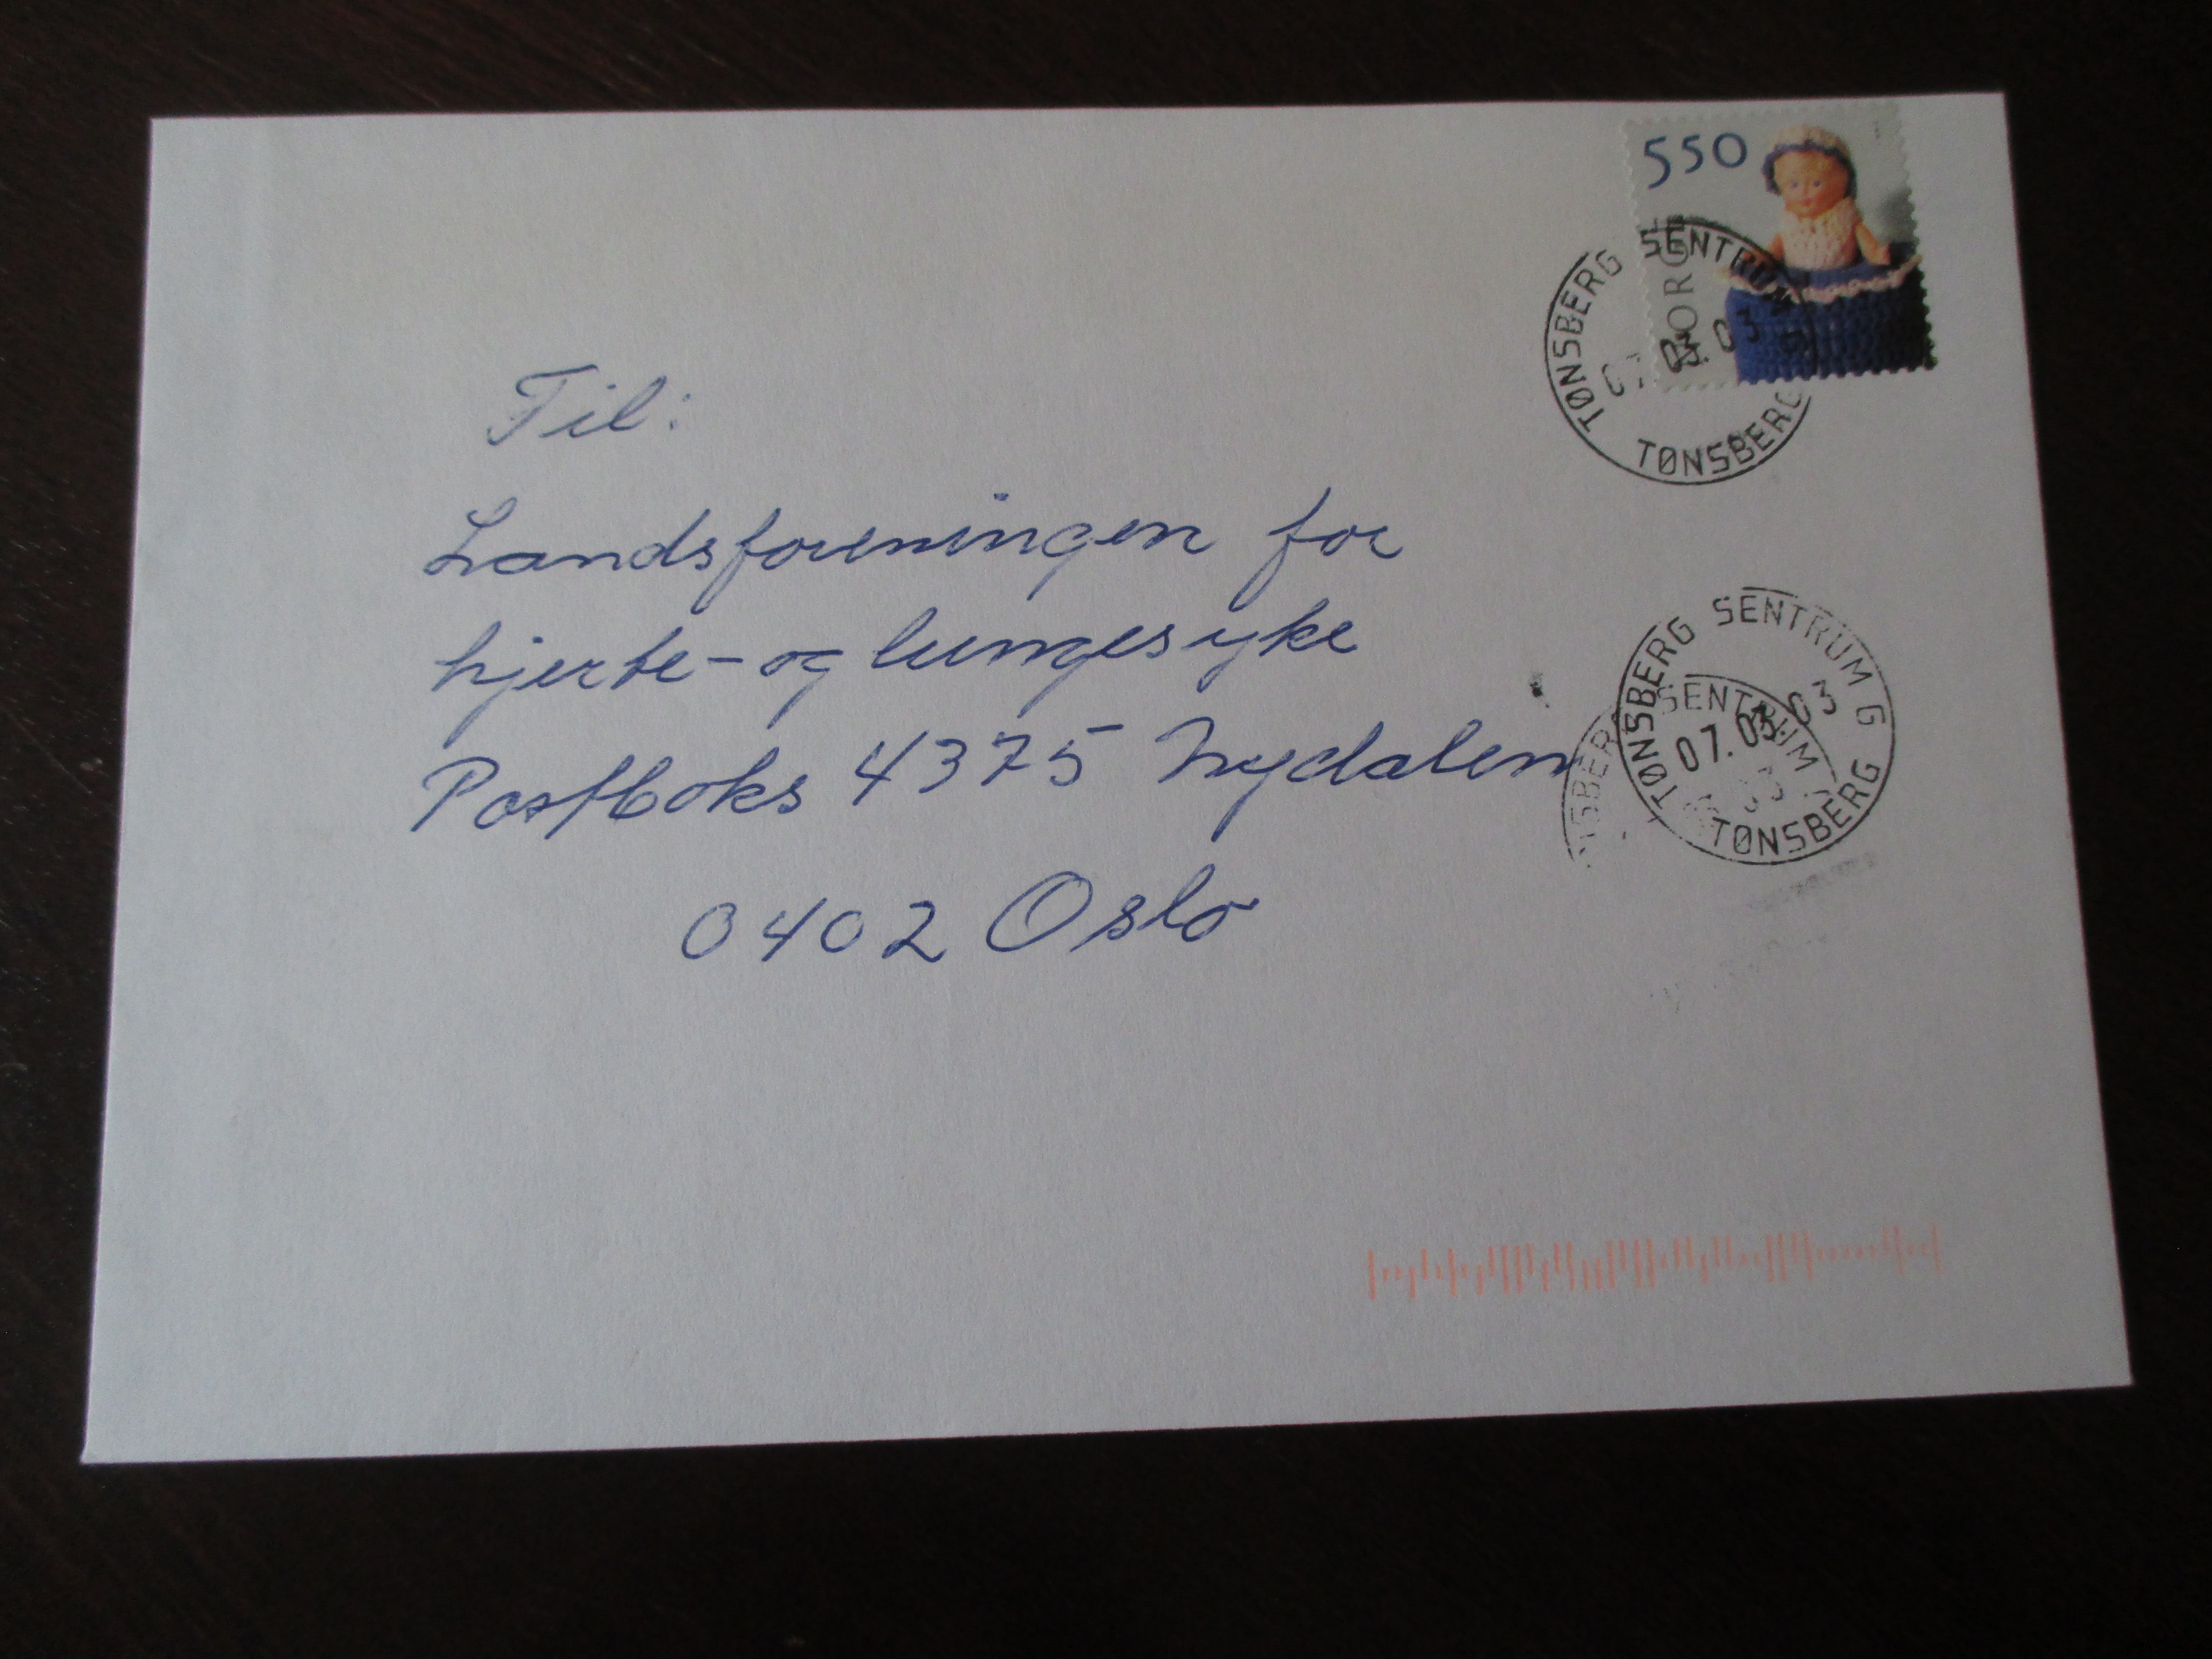 550
NORGE
TØNSBERG SENTRUM
07.03.03
TØNSBERG
Til:
Landsforeningen for
hjerte-og lungesyke
Postboks 4375 Nydalen
0402 Oslo
TØNSBERG SENTRUM G
07.03.03
TØNSBERG
SENTRUM